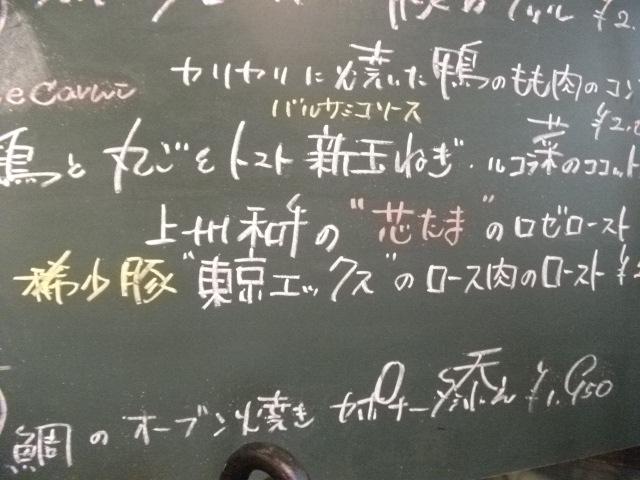 ¥2.
カリカリに焼いた鴨のもも肉のコン
e Carni
バルサミコソース
¥2.
鶏と丸ごとトマト 新玉ねぎ・ルコラ菜のココット
上州和牛の"芯たま"のロゼロースト
稀少豚"東京エックス"のロース肉のロースト ¥2
鯛のオーブン焼き カポナータ添え ¥1.950